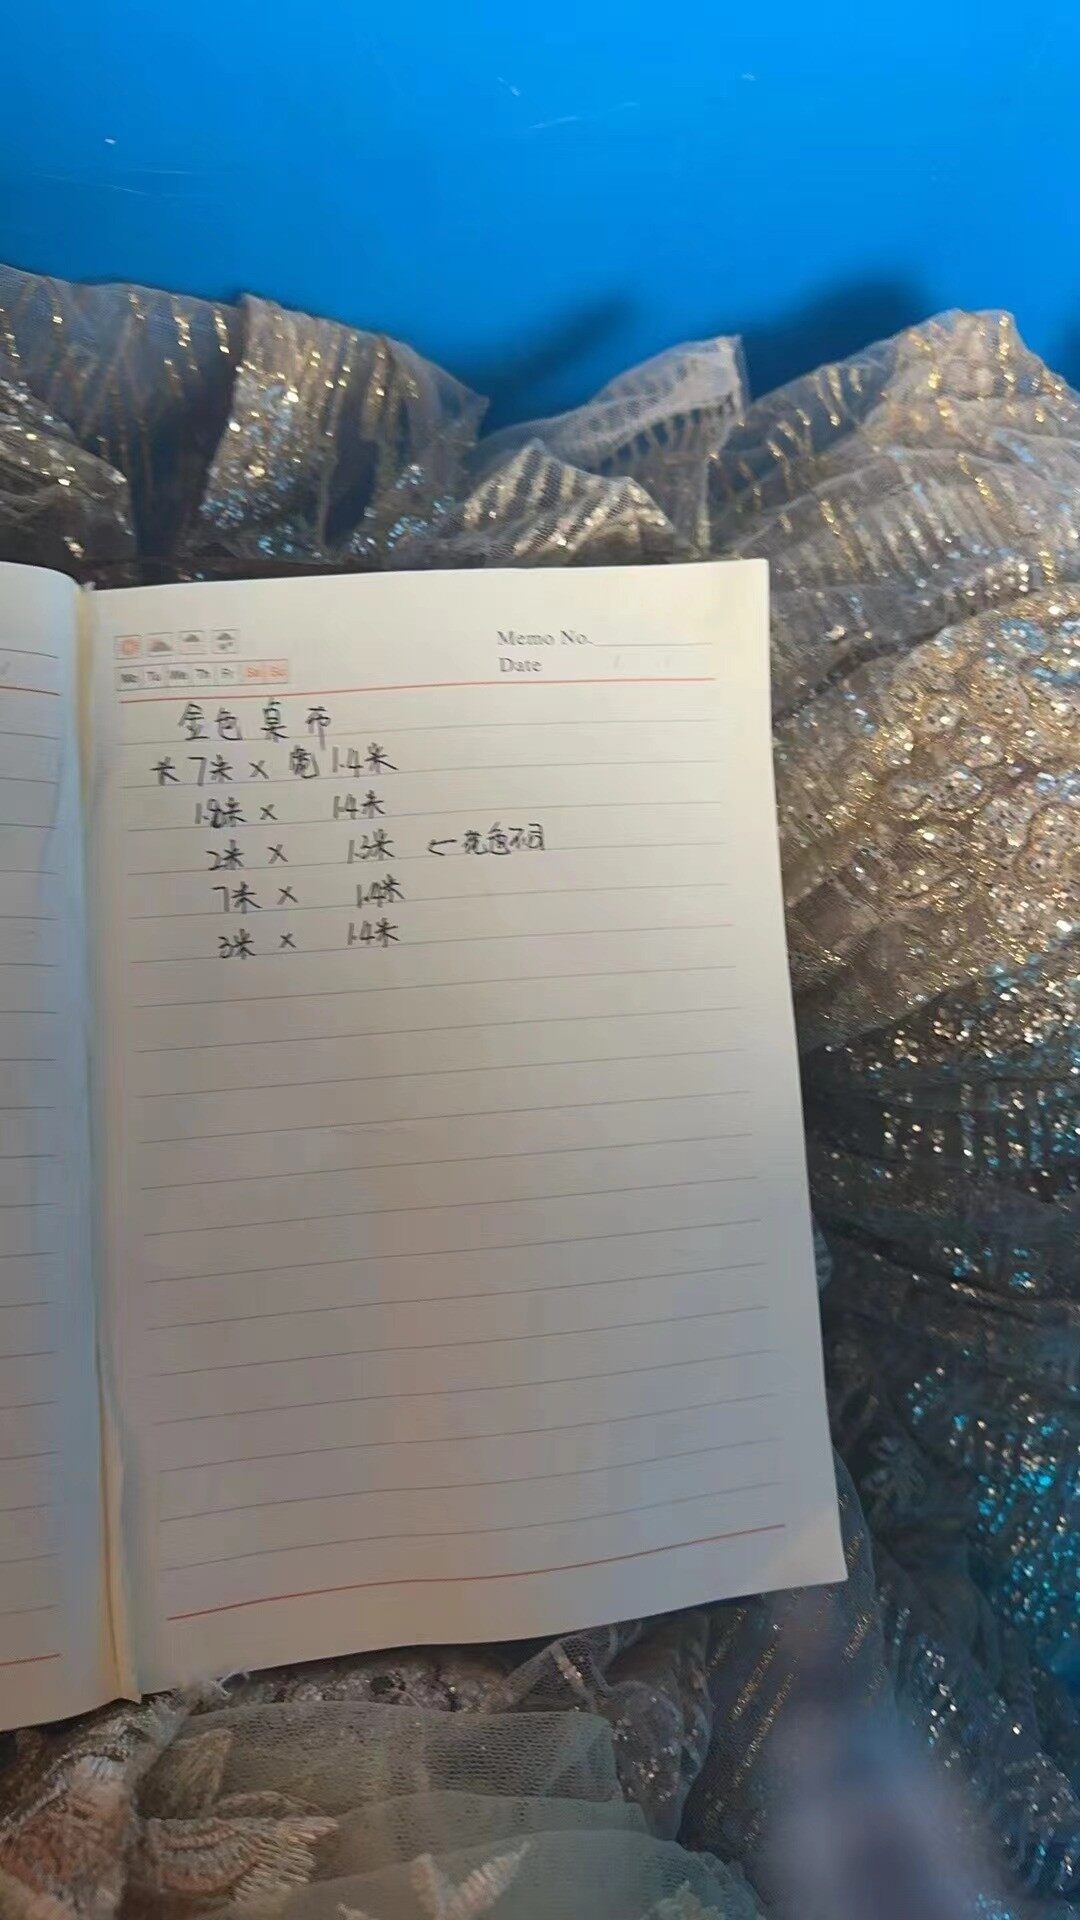 Memo No.
Date
Mo Tu We Th Fr Sa Su
金色桌布
长7米 × 宽1.4米
1.8米 × 1.4米
2米 × 1.3米 ←花色不同
7米 × 1.4米
3米 × 1.4米